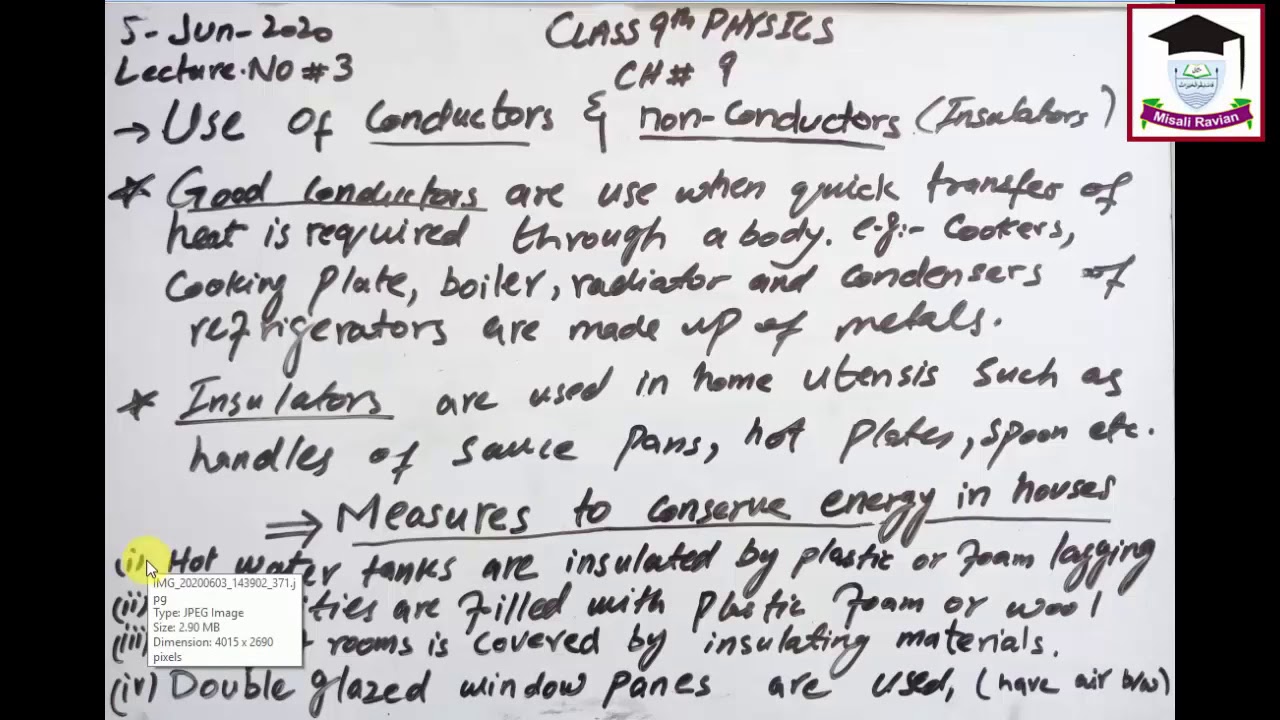 5-Jun-2020
CLASS 9th PHYSICS
Lecture.NO # 3
CH# 9
→ Use of Conductors & non-Conductors (Insulators)
* Good conductors are use when quick transfer of
heat is required through a body. e.g:- Cookers,
Cooking Plate, boiler, radiator and condensers of
refrigerators are made up of metals.
* Insulators are used in home utensis such as
handles of sauce pans, hot plates, spoon etc.
⇒ Measures to conserve energy in houses
(i) Hot water tanks are insulated by plastic or foam lagging
(ii) are filled with plastic foam or wool
(iii) rooms is covered by insulating materials.
(iv) Double glazed window panes are used, (have air b/w)
IMG_20200603_143902_371.j
pg
Type: JPEG Image
Size: 2.90 MB
Dimension: 4015 x 2690
pixels
Misali Ravian